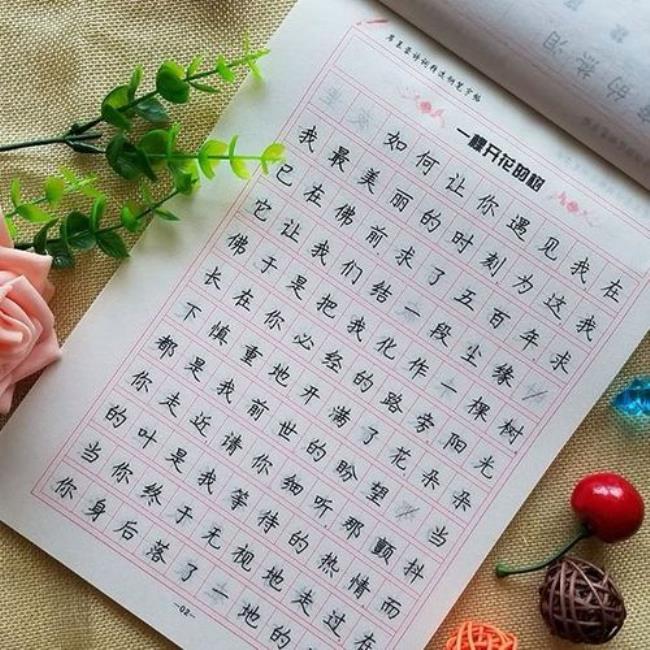 席慕蓉诗词精选钢笔字帖
一棵开花的树
如何让你遇见我在
我最美丽的时刻为这我
已在佛前求了五百年求
它让我们结一段尘缘/
佛于是把我化作一棵树
长在你必经的路旁阳光
下慎重地开满了花朵朵
都是我前世的盼望/当
你走近请你细听那颤抖
的叶是我等待的热情而
当你终于无视地走过在
你身后落了一地的
—02—